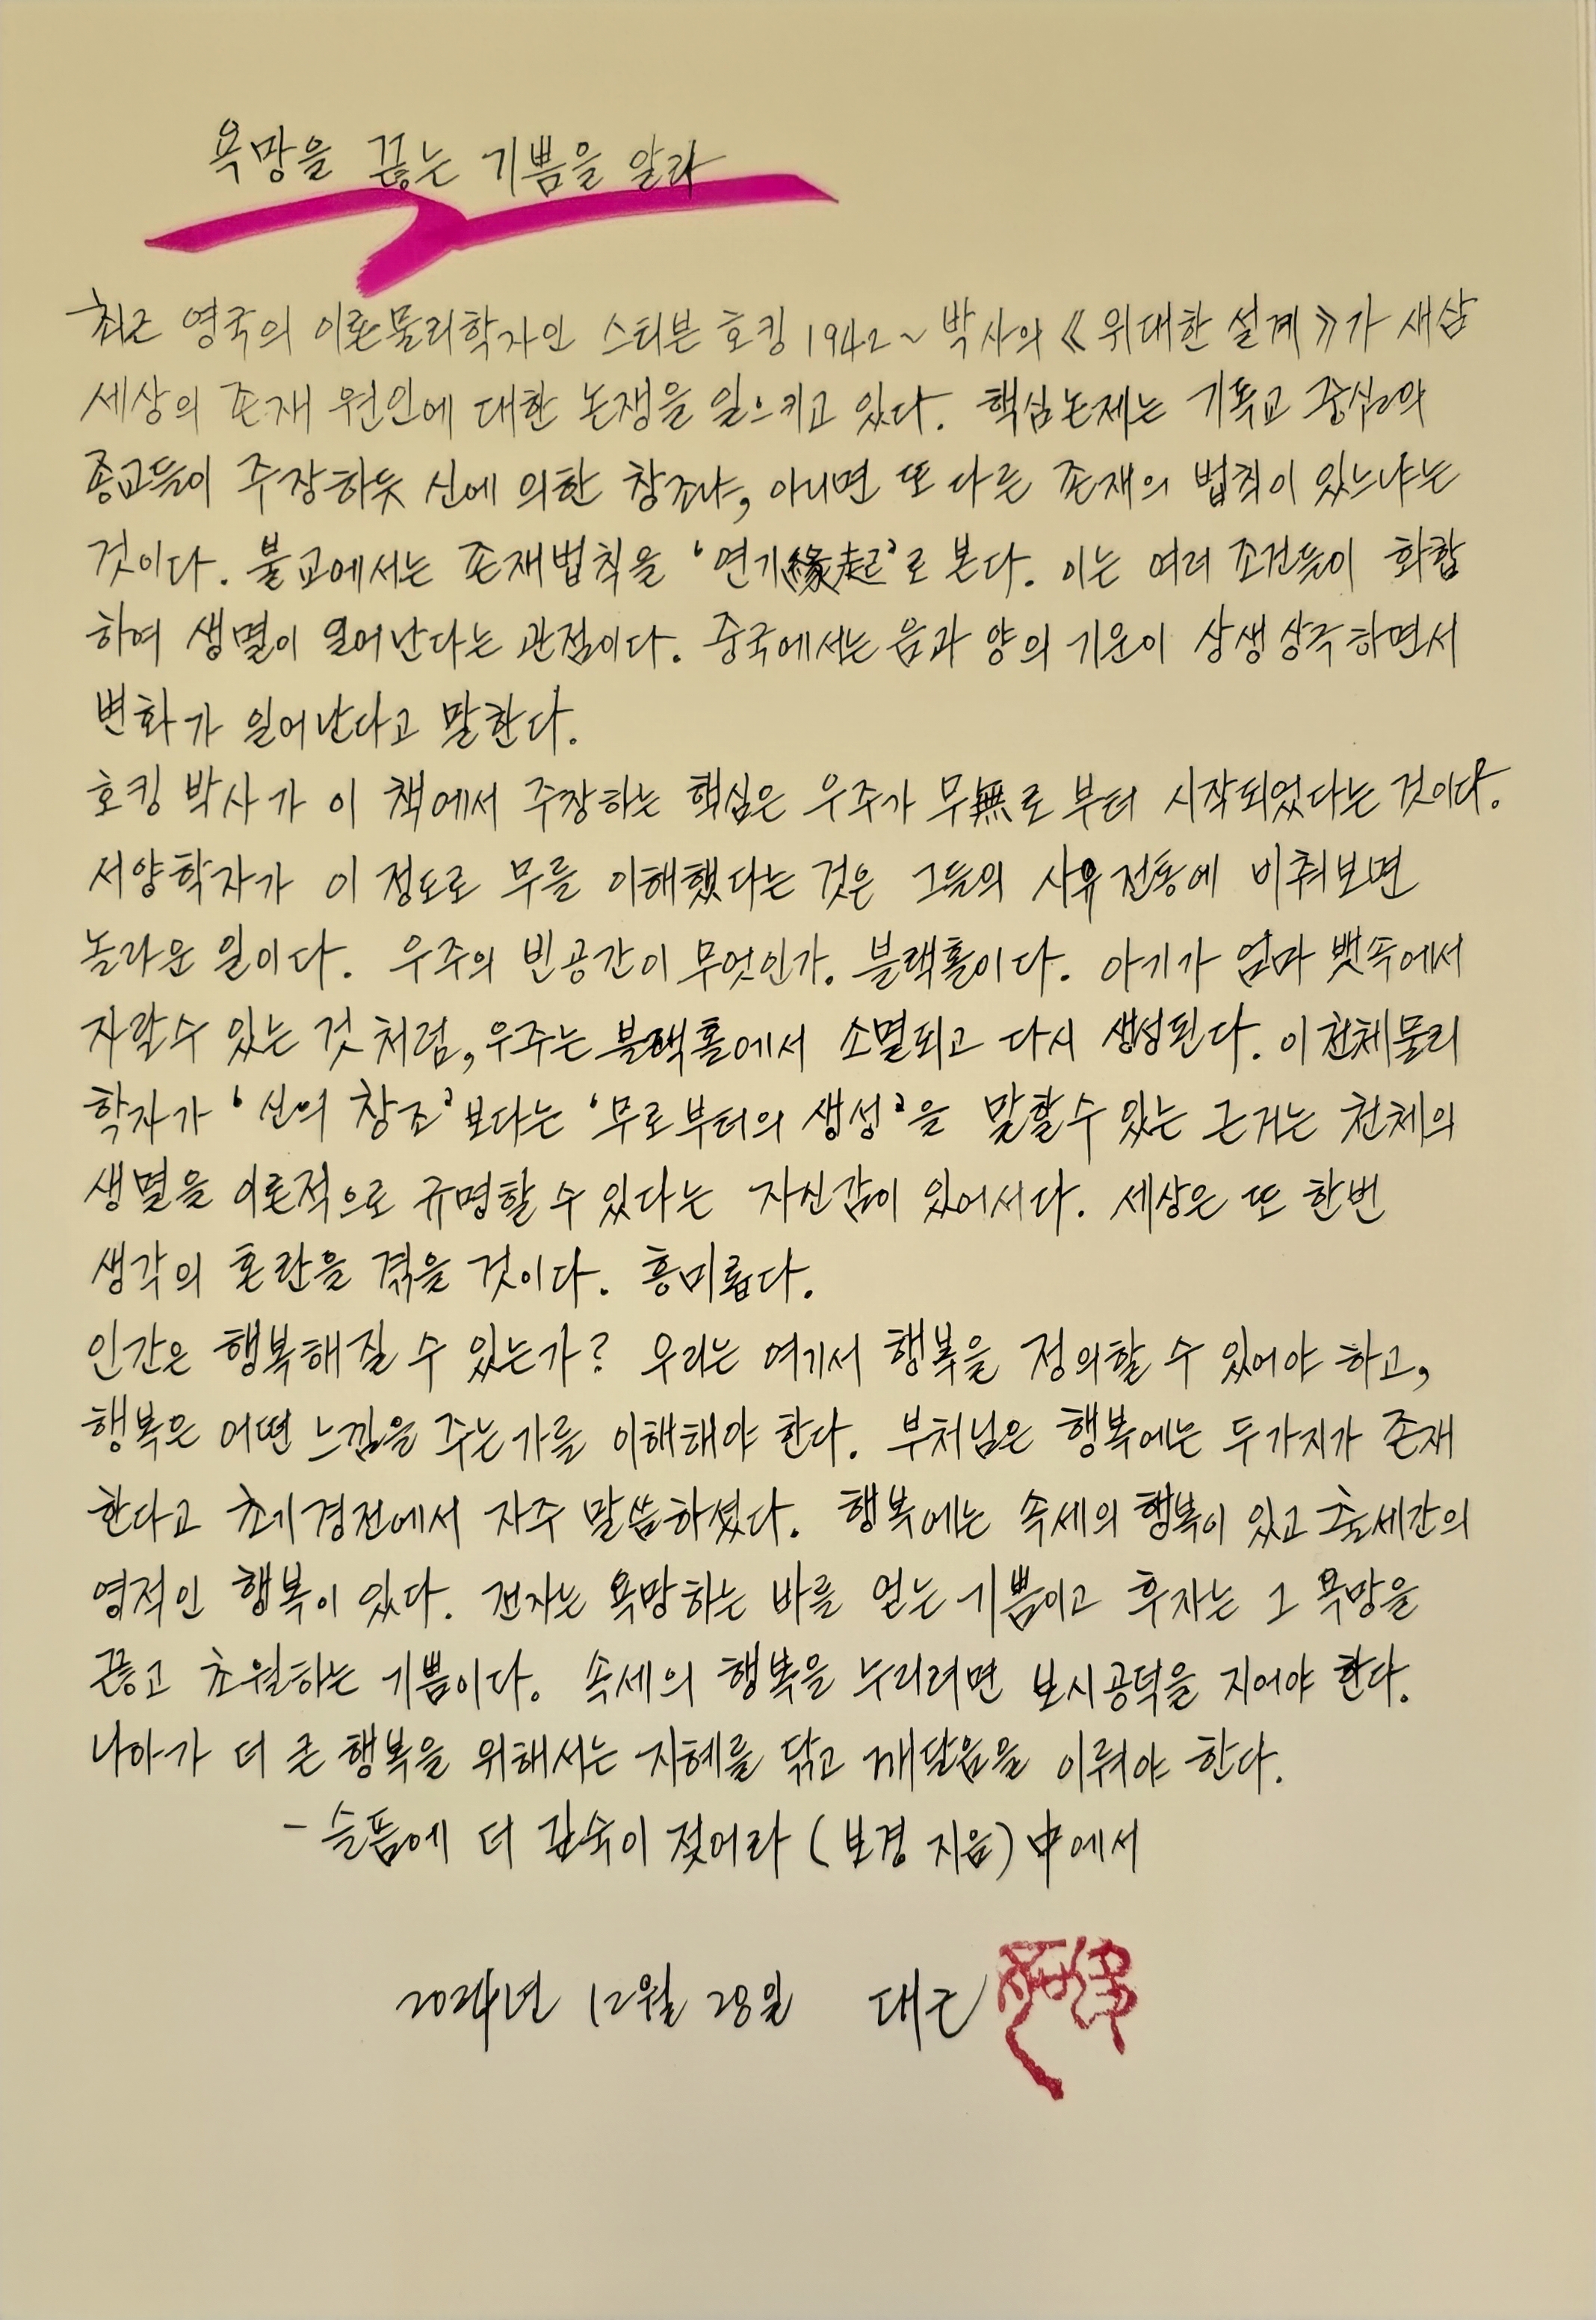 욕망을 끊는 기쁨을 알라
최근 영국의 이론물리학자인 스티븐 호킹 1942~ 박사의 《위대한 설계》가 새삼
세상의 존재 원인에 대한 논쟁을 일으키고 있다. 핵심논제는 기독교 중심의
종교들이 주장하듯 신에 의한 창조냐, 아니면 또 다른 존재의 법칙이 있느냐는
것이다. 불교에서는 존재법칙을 '연기緣起'로 본다. 이는 여러 조건들이 화합
하여 생멸이 일어난다는 관점이다. 중국에서는 음과 양의 기운이 상생상극하면서
변화가 일어난다고 말한다.
호킹 박사가 이 책에서 주장하는 핵심은 우주가 무無로 부터 시작되었다는 것이다.
서양학자가 이 정도로 무를 이해했다는 것은 그들의 사유전통에 비춰보면
놀라운 일이다. 우주의 빈공간이 무엇인가. 블랙홀이다. 아기가 엄마 뱃속에서
자랄수 있는 것 처럼, 우주는 블랙홀에서 소멸되고 다시 생성된다. 이 천체물리
학자가 '신의 창조'보다는 '무로부터의 생성'을 말할수 있는 근거는 천체의
생멸을 이론적으로 규명할 수 있다는 자신감이 있어서다. 세상은 또 한번
생각의 혼란을 겪을 것이다. 흥미롭다.
인간은 행복해질 수 있는가? 우리는 여기서 행복을 정의할 수 있어야 하고,
행복은 어떤 느낌을 주는가를 이해해야 한다. 부처님은 행복에는 두가지가 존재
한다고 초기경전에서 자주 말씀하셨다. 행복에는 속세의 행복이 있고 출세간의
영적인 행복이 있다. 전자는 욕망하는 바를 얻는 기쁨이고 후자는 그 욕망을
끊고 초월하는 기쁨이다. 속세의 행복을 누리려면 보시공덕을 지어야 한다.
나아가 더 큰 행복을 위해서는 지혜를 닦고 깨달음을 이뤄야 한다.
- 슬픔에 더 깊숙이 젖어라 (보경 지음) 中에서
2024년 12월 28일 대근